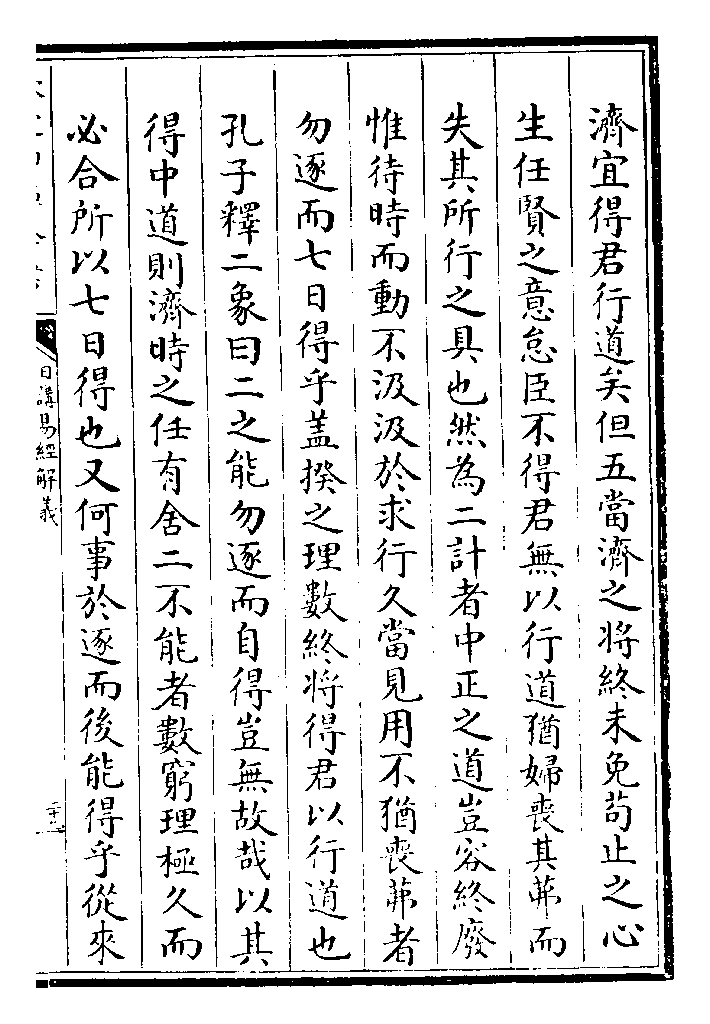 濟宜得君行道矣但五當濟之將終未免茍止之心
生任賢之意怠臣不得君無以行道猶婦喪其茀而
失其所行之具也然為二計者中正之道豈容終廢
惟待時而動不汲汲於求行久當見用不猶喪茀者
勿逐而七日得乎蓋揆之理數終將得君以行道也
孔子釋二象曰二之能勿逐而自得豈無故哉以其
得中道則濟時之任有舍二不能者數窮理極久而
必合所以七日得也又何事於逐而後能得乎從來
日講易經解義